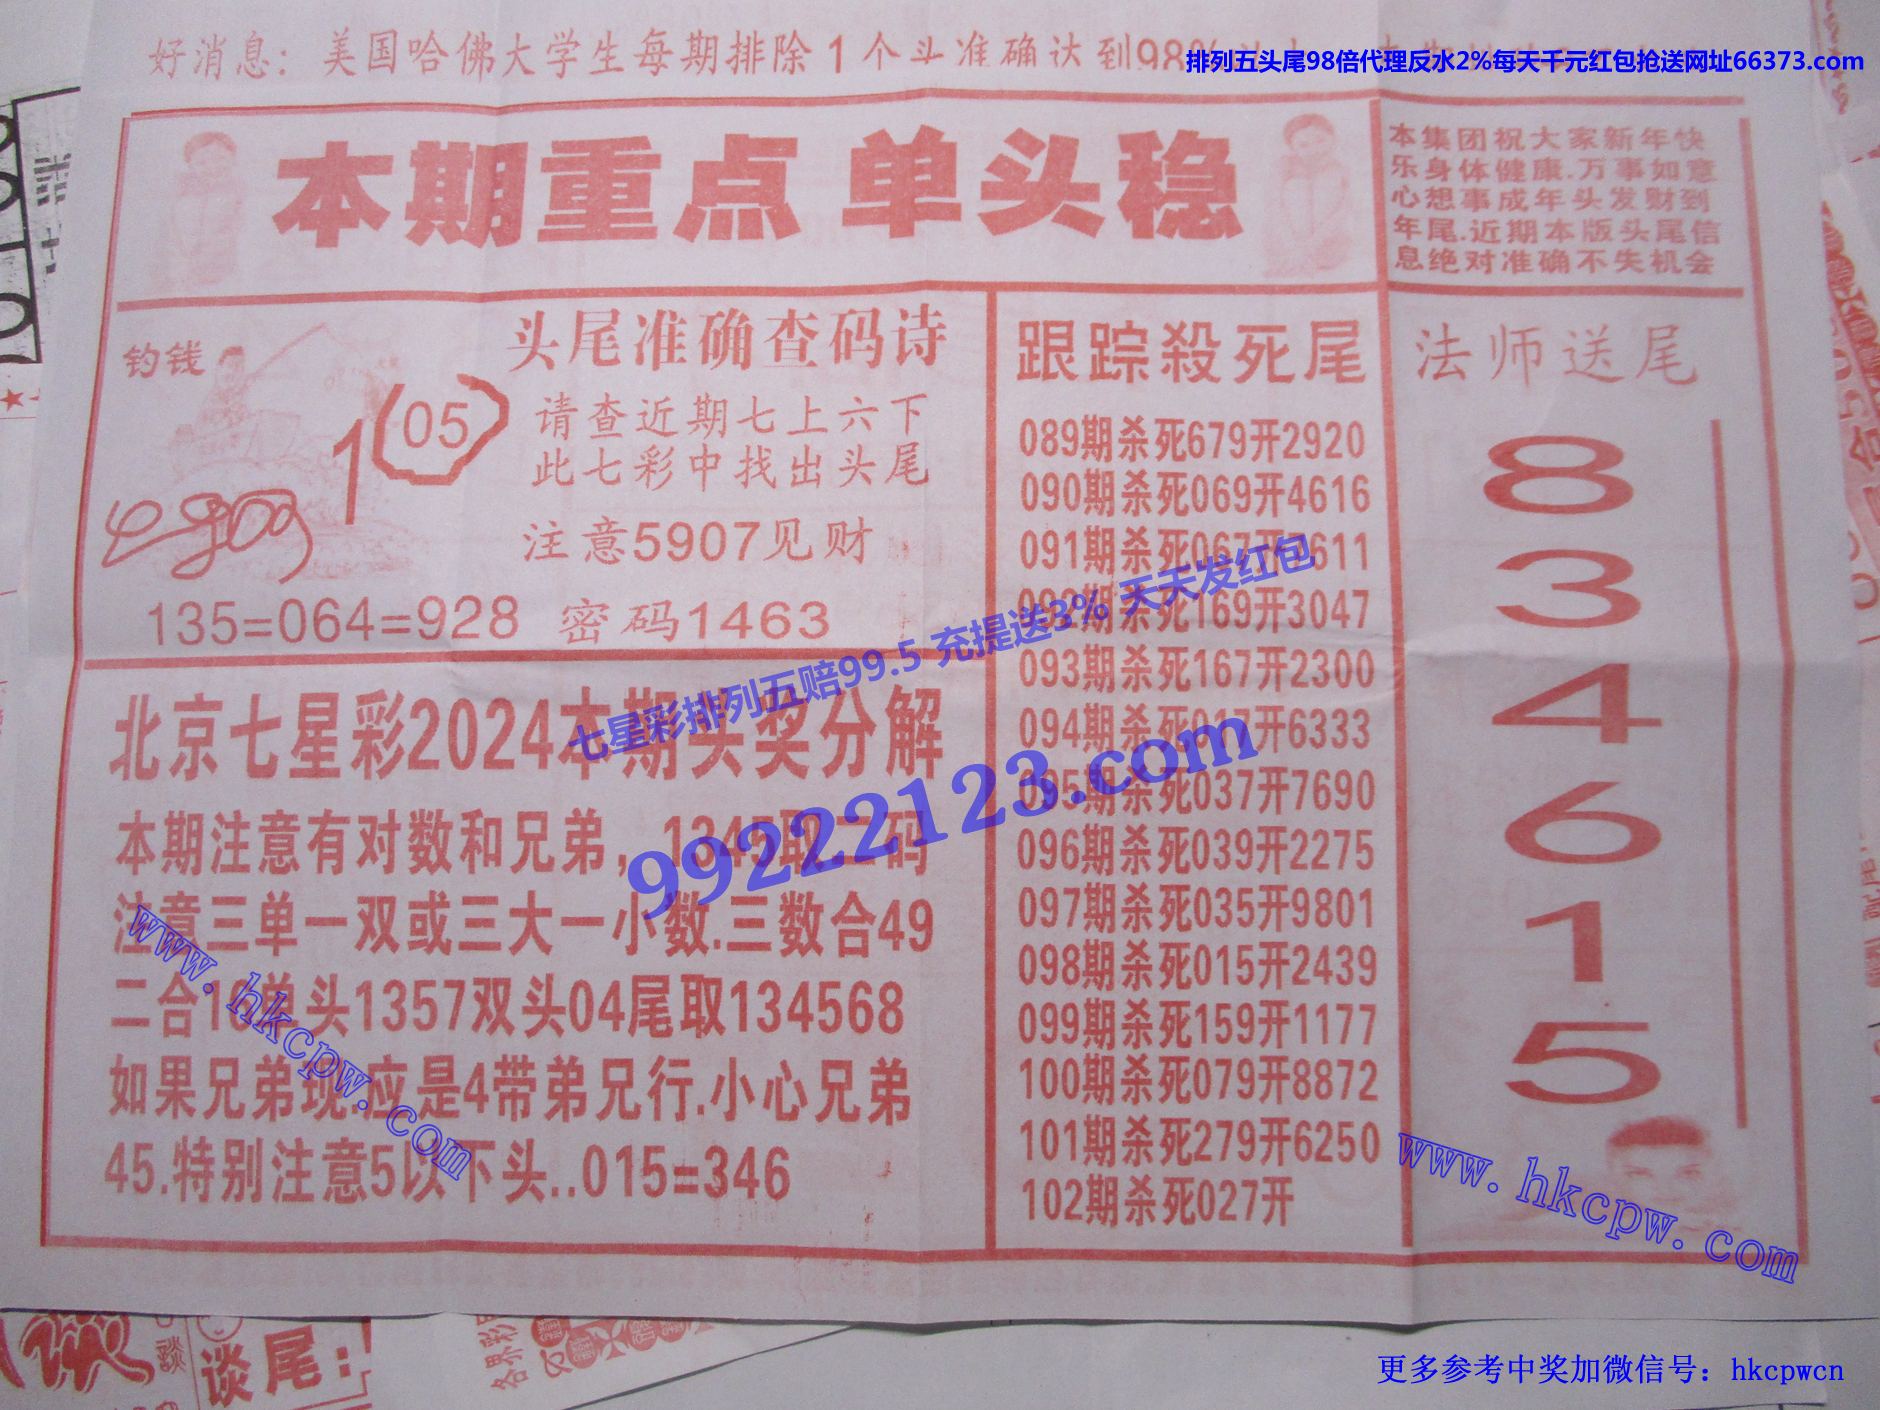 好消息：美国哈佛大学生每期排除1个头准确达到98%
排列五头尾98倍代理反水2%每天千元红包抢送网址66373.com
本期重点 单头稳
本集团祝大家新年快
乐身体健康.万事如意
心想事成年头发财到
年尾.近期本版头尾信
息绝对准确不失机会
钓钱
1
05
头尾准确查码诗
请查近期七上六下
此七彩中找出头尾
注意5907见财
135=064=928 密码1463
北京七星彩2024本期头奖分解
本期注意有对数和兄弟，1345取二码
注意三单一双或三大一小数.三数合49
二合16单头1357双头04尾取134568
如果兄弟现.应是4带弟兄行.小心兄弟
45.特别注意5以下头..015=346
跟踪殺死尾
089期杀死679开2920
090期杀死069开4616
091期杀死067开 611
092期杀死169开3047
093期杀死167开2300
094期杀死017开6333
095期杀死037开7690
096期杀死039开2275
097期杀死035开9801
098期杀死015开2439
099期杀死159开1177
100期杀死079开8872
101期杀死279开6250
102期杀死027开
法师送尾
8
3
4
6
1
5
七星彩排列五赔99.5 充提送3% 天天发红包
99222123.com
www.hkcpw.com
www.hkcpw.com
谈尾：
各界彩
更多参考中奖加微信号：hkcpwcn